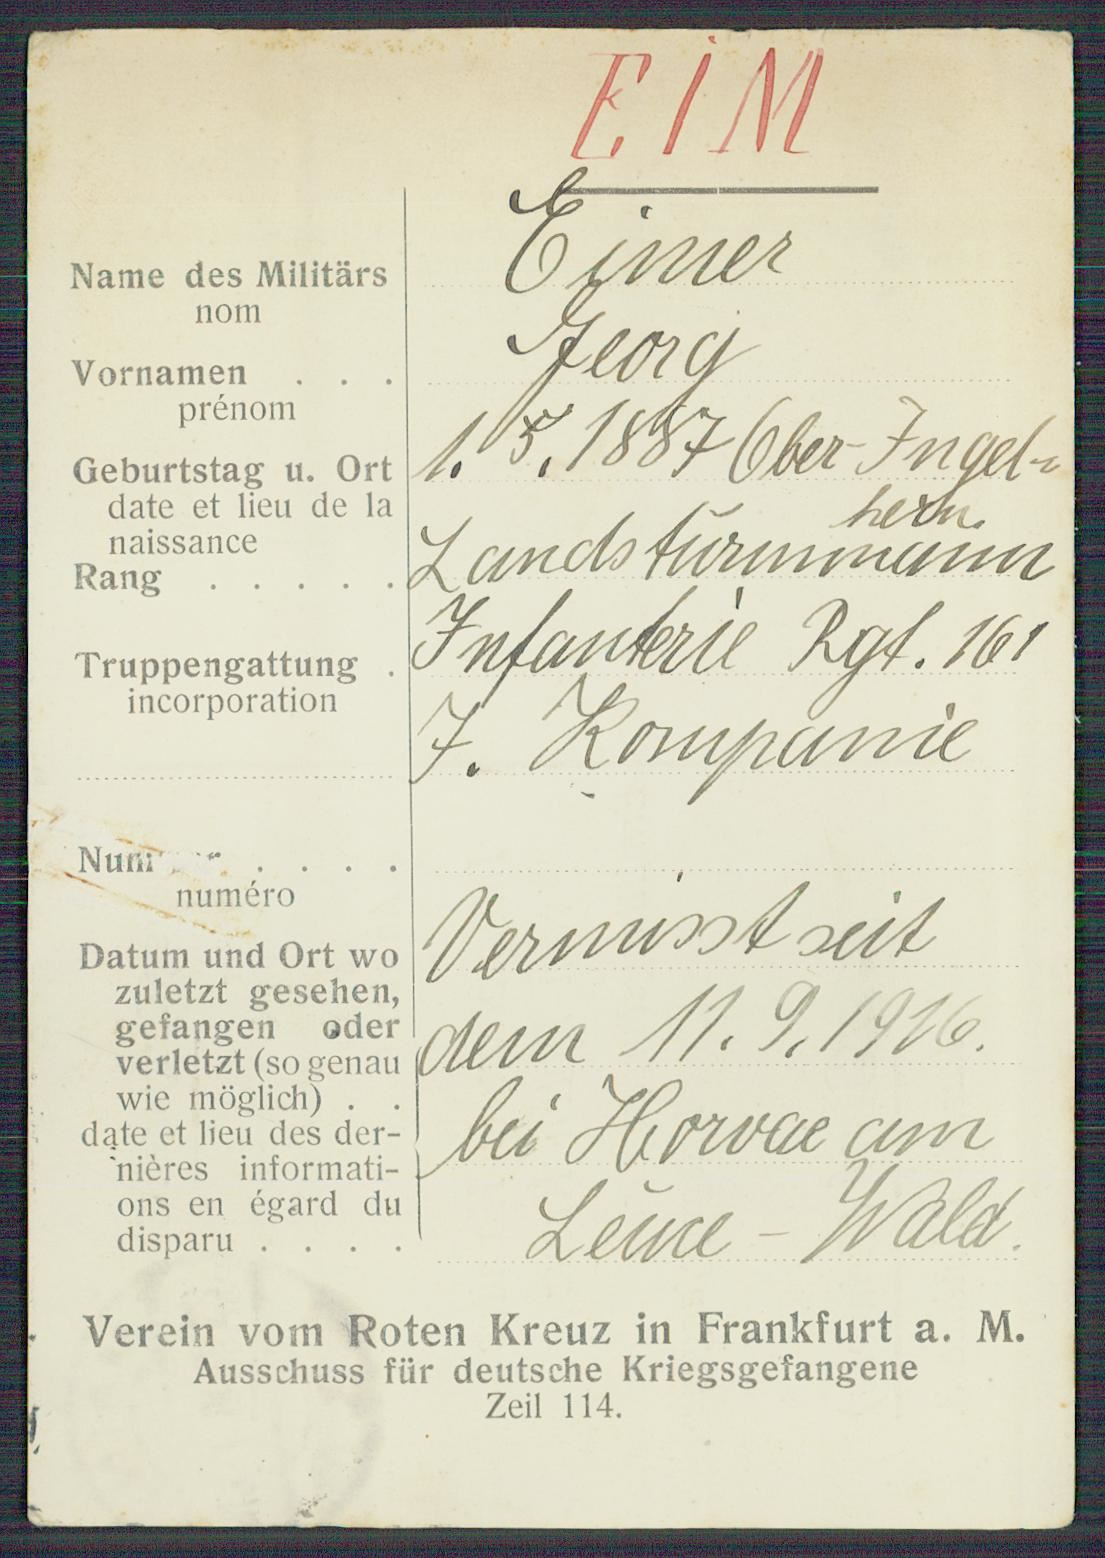 EIM
Name des Militärs Eimer
nom
Vornamen . . . Georg
prénom
Geburtstag u. Ort 1. 5. 1887 Ober-Ingel-
date et lieu de la heim.
naissance
Rang . . . . . Landsturmmann
Truppengattung . Infanterie Rgt. 161
incorporation
7. Kompanie
Nummer . . . .
numéro
Datum und Ort wo Vermisst seit
zuletzt gesehen,
gefangen oder dem 11. 9. 1916.
verletzt (so genau
wie möglich) . .
date et lieu des der- bei Horvae am
nières informati-
ons en égard du Leuce - Wald.
disparu . . . .
Verein vom Roten Kreuz in Frankfurt a. M.
Ausschuss für deutsche Kriegsgefangene
Zeil 114.